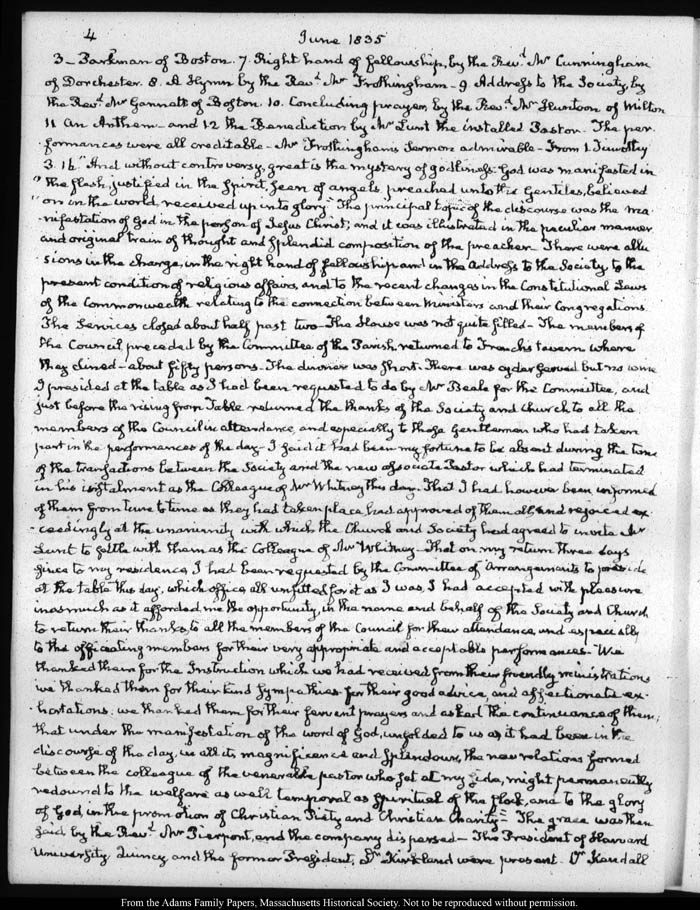 4 June 1835
3 - Parkman of Boston. 7. Right hand of fellowship, by the Rev.d Mr Cunningham
of Dorchester. 8. A Hymn by the Rev.d Mr Frothingham - 9 Address to the Society, by
the Rev.d Mr Gannett of Boston. 10. Concluding prayer by the Rev.d Mr Huntoon of Milton
11 An Anthem - and 12 the Benediction by Mr Lunt the installed Pastor. The per-
formances were all creditable - Mr Frothingham's Sermon admirable - From 1. Timothy
3. 16 "And without controversy, great is the mystery of godliness: God was manifested in
"the flesh, justified in the Spirit, seen of angels, preached unto the Gentiles, believed
"on in the world, received up into glory." The principal topic of the discourse was the ma-
nifestation of God in the person of Jesus Christ; and it was illustrated in the peculiar manner
and original train of thought and splendid composition of the preacher. There were allu-
sions in the charge, in the right hand of fellowship and in the Address to the Society, to the
present condition of religious affairs, and to the recent changes in the Constitutional Laws
of the Commonwealth relating to the connection between Ministers and their Congregations.
The Services closed about half past two - The House was not quite filled - The members of
the Council preceded by the Committee of the Parish returned to French's tavern where
they dined - about fifty persons. The dinner was short. There was cyder served but no wine
I presided at the table as I had been requested to do by Mr Beale for the Committee, and
just before the rising from Table returned the thanks of the Society and church to all the
members of the Council in attendance, and especially to those Gentlemen who had taken
part in the performances of the day - I said it had been my fortune to be absent during the time
of the transactions between the Society and the new associate Pastor which had terminated
in his instalment as the Colleague of Mr Whitney this day. That I had however been informed
of them from time to time as they had taken place, had approved of them all, and rejoiced ex-
ceedingly at the unanimity with which the Church and Society had agreed to invite Mr
Lunt to settle with them as the Colleague of Mr Whitney - That on my return three days
since to my residence, I had been requested by the Committee of Arrangements to preside
at the table this day, which office, all unfitted for it as I was, I had accepted with pleasure
inasmuch as it afforded me the opportunity, in the name and behalf of the Society and Church
to return their thanks to all the members of the Council for their attendance, and especially
to the officiating members for their very appropriate and acceptable performances - We
thanked them for the Instruction which we had received from their friendly ministrations
we thanked them for their kind sympathies - for their good advice, and affectionate ex-
hortations; we thanked them for their fervent prayers and asked the continuance of them;
that under the manifestation of the word of God, unfolded to us as it had been in the
discourse of the day, in all its magnificence and splendour, the new relations formed
between the colleague of the venerable pastor who sat at my side, might permanently
redound to the welfare as well temporal as spiritual of the flock, and to the glory
of God, in the promotion of Christian Piety and Christian Charity - The grace was then
said by the Rev.d Mr Pierpont, and the company dispersed - The President of Harvard
University, Quincy, and the former President, Dr Kirkland were present. Dr Kendall
From the Adams Family Papers, Massachusetts Historical Society. Not to be reproduced without permission.